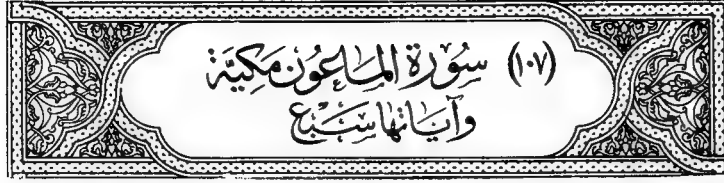 (١٠٧) سُورَة المَاعُون مَكِيَّة
وآيَاتها سَبْع